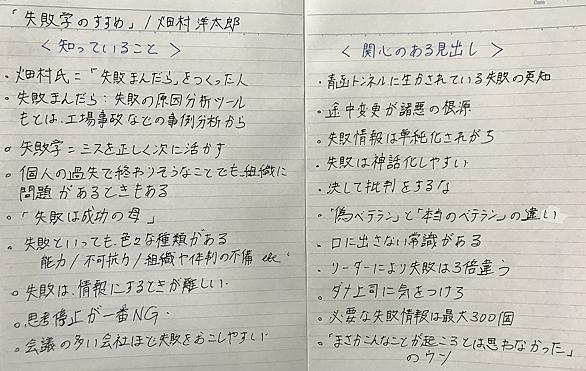 「失敗学のすすめ」/ 畑村 洋太郎
＜知っていること＞
・畑村氏＝「失敗まんだら」をつくった人
・失敗まんだら：失敗の原因分析ツール
もとは、工場事故などの事例分析から
。失敗学＝ミスを正しく次に活かす
。個人の過失で終わりそうなことでも、組織に
問題があるときもある
。「失敗は成功の母」
。失敗といっても、色々な種類がある
能力/不可抗力/組織や体制の不備 etc.
。失敗は、情報にするときが難しい
。思考停止が一番NG.
。会議の多い会社ほど失敗をおこしやすい
Date
＜関心のある見出し＞
・青函トンネルに生かされている失敗の英知
・途中変更が諸悪の根源
・失敗情報は単純化されがち
・失敗は神話化しやすい
・決して批判をするな
・"偽ベテラン"と"本当のベテラン"の違い
・口に出さない常識がある
・リーダーにより失敗は3倍違う
・ダメ上司に気をつけろ
・必要な失敗情報は最大300個
・「まさかこんなことが起ころとは思わなかった」
のウソ